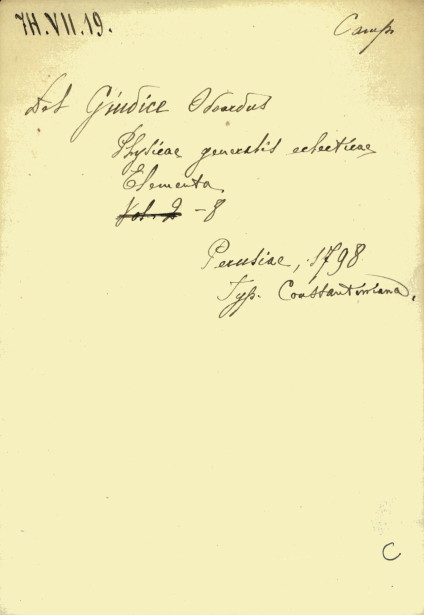 7H.VII.19.
Camp
Del Giudice Odoardus
Physicae generalis eclecticae
Elementa
Vol. 2 - 8
Perusiae, 1798
Typ. Constantiniana.
C